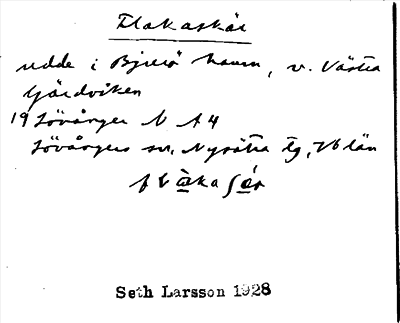 Flakaskär
udde i Bjurö hamn, v. Västra
Gärdviken
19 Lövånger N A 4
Lövångers sn, Nysätra tg, Vb län
Seth Larsson 1928